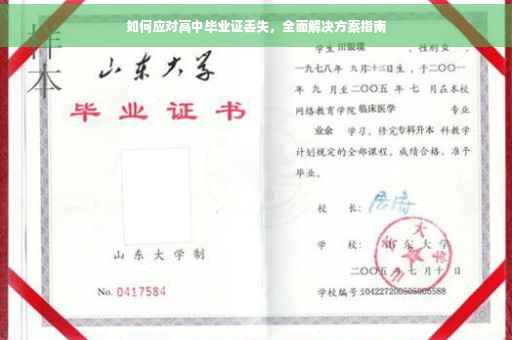 如何应对高中毕业证丢失，全面解决方案指南
样本
山东大学
毕业证书
山东大学制
No. 0417584
学生 田银瑞 ，性别 女 ，
一九七八年 九月十三日生，于二〇〇一
年 九 月至二〇〇五 年 七 月在本校
网络教育学院 临床医学 专业
业余 学习，修完专科升本 科教学
计划规定的全部课程，成绩合格，准予
毕业。
校 长：
学 校：山东大学
二〇〇五 年 七 月 十 日
学校编号:104227200505005588